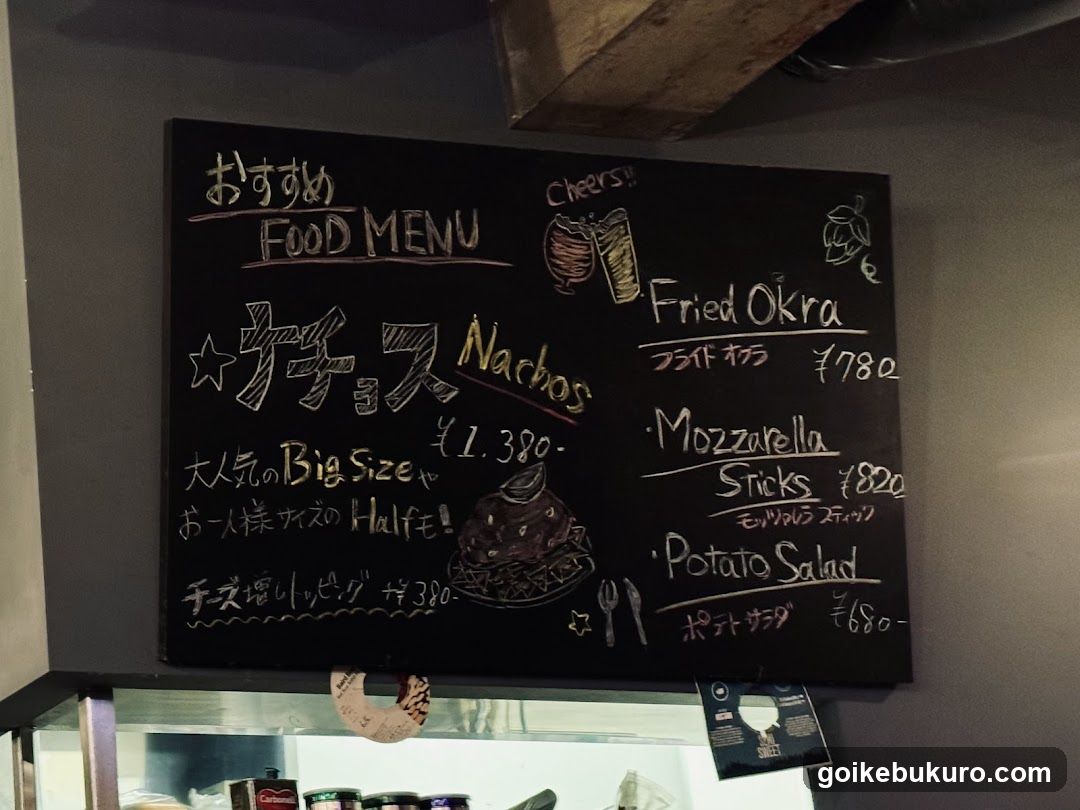 おすすめ
FOOD MENU
Cheers!!
☆ナチョス Nachos
¥1.380-
大人気のBig Sizeや
お一人様サイズのHalfも!
チーズ増しトッピング +¥380-
・Fried Okra
フライドオクラ ¥780-
・Mozzarella
Sticks ¥820-
モッツァレラ スティック
・Potato Salad
ポテトサラダ ¥680-
Carbonell
SWEET
goikebukuro.com